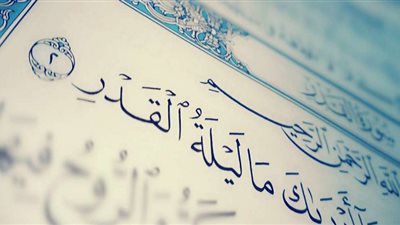 سُورَةُ القَدْرِ
ٱللَّهِ ٱلرَّحْمَٰنِ ٱلرَّحِيمِ
أَدْرَىٰكَ مَا لَيْلَةُ ٱلْقَدْرِ ٢
وَٱلرُّوحُ فِيهَا